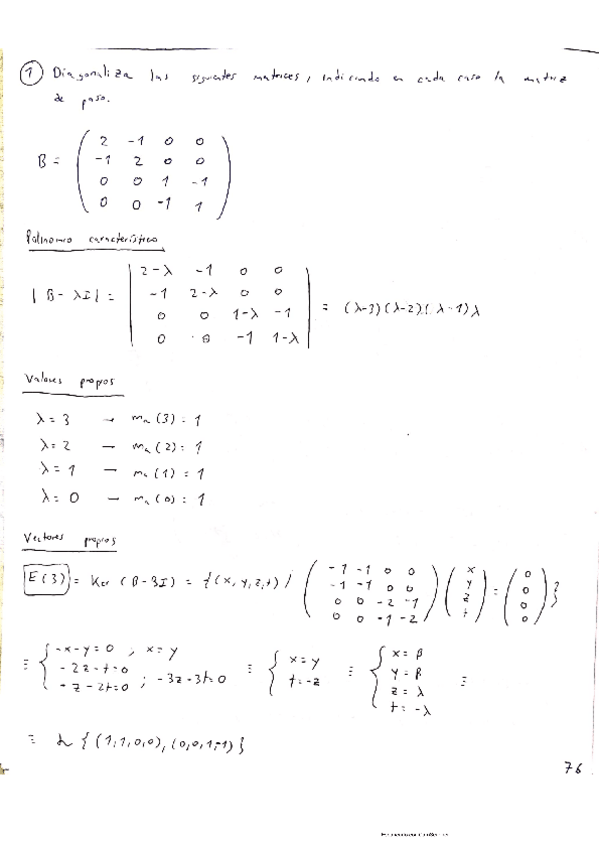 ① Diagonaliza las siguientes matrices, indicando en cada caso la matriz
de paso.
B = ( 2 -1 0 0
-1 2 0 0
0 0 1 -1
0 0 -1 1 )
Polinomio característico
|B - λI| = | 2-λ -1 0 0
-1 2-λ 0 0
0 0 1-λ -1
0 0 -1 1-λ | = (λ-3)(λ-2)(λ-1)λ
Valores propios
λ = 3 → ma(3) = 1
λ = 2 — ma(2) = 1
λ = 1 — ma(1) = 1
λ = 0 — ma(0) = 1
Vectores propios
E(3) = Ker (B-3I) = {(x, y, z, t) / ( -1 -1 0 0
-1 -1 0 0
0 0 -2 -1
0 0 -1 -2 ) ( x y z t ) = ( 0 0 0 0 ) }
≡ { -x-y=0 ; x=y
-2z-t=0
-z-2t=0 ; -3z-3t=0
≡ { x=y
t=-z
≡ { x=β
y=β
z=λ
t=-λ ≡
≡ L {(1,1,0,0), (0,0,1,-1)}
76